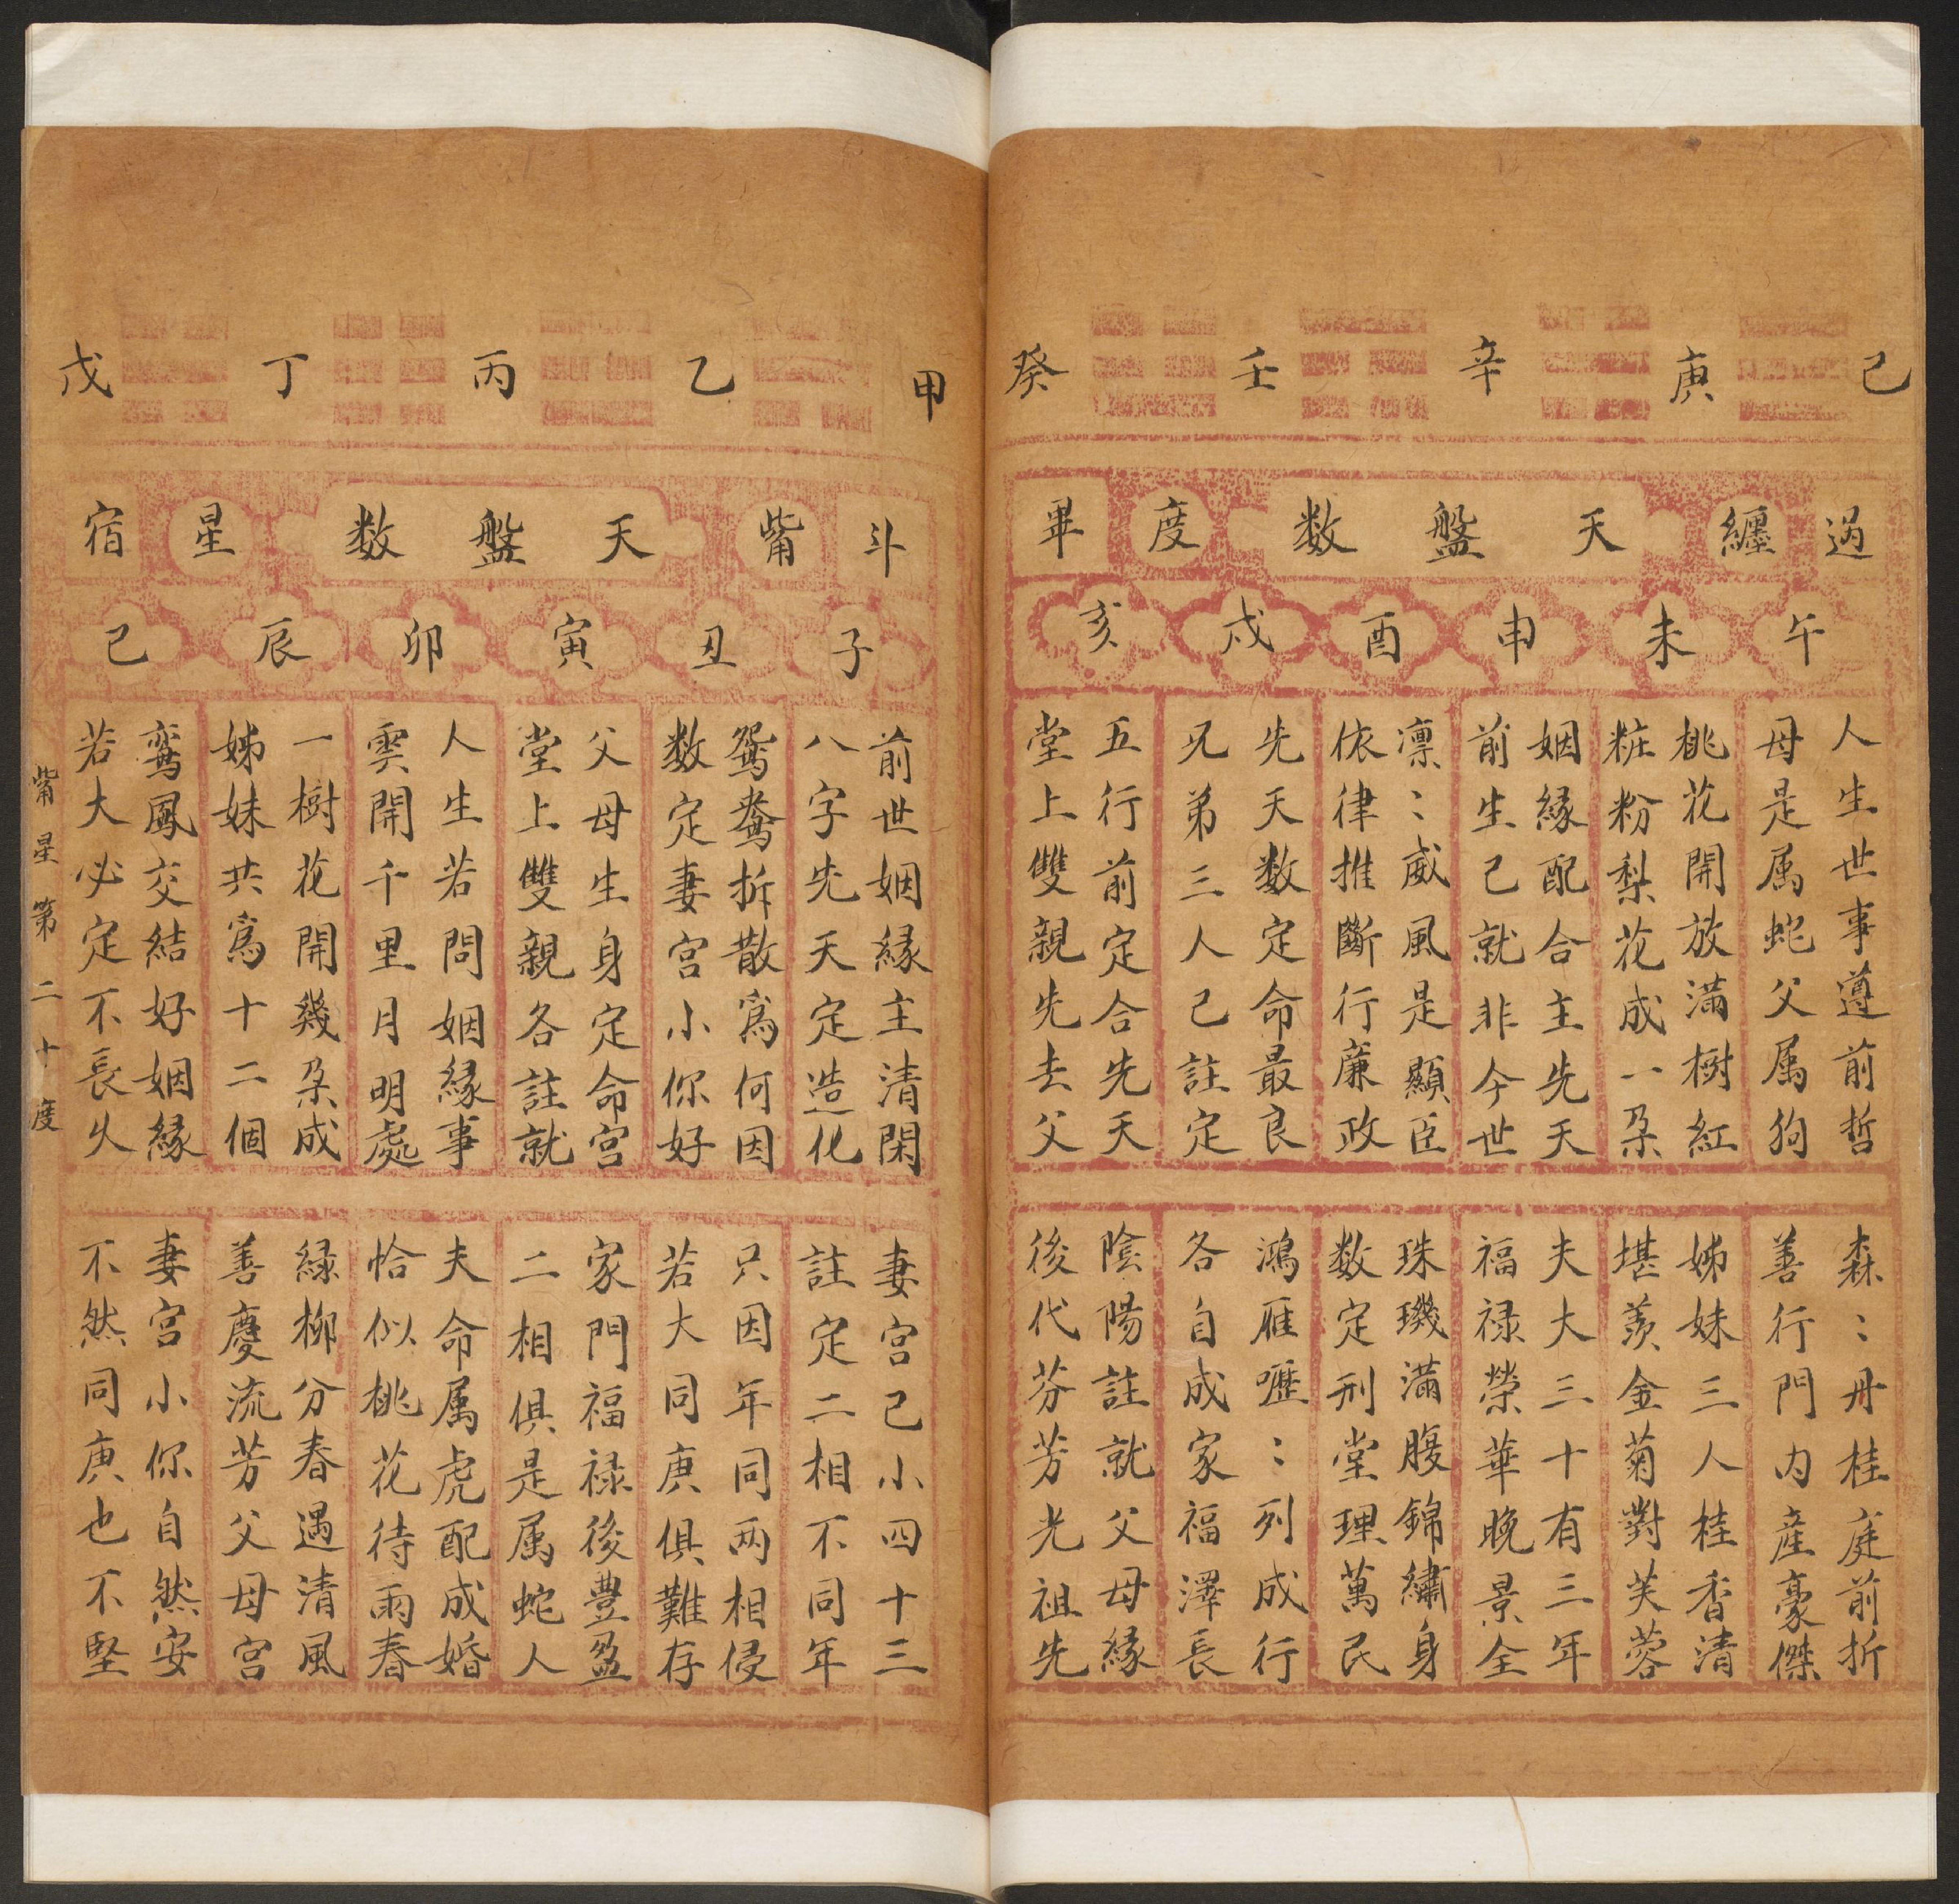 己 庚 辛 壬 癸
過 纏 天 盤 数 度 畢
午 未 申 酉 戌 亥
人生世事遵前哲
母是属蛇父属狗
桃花開放滿樹紅
粧粉梨花成一朶
姻緣配合主先天
前生已就非今世
凛〻威風是顯臣
依律推斷行廉政
先天数定命最良
兄弟三人已註定
五行前定合先天
堂上雙親先去父
森〻丹桂庭前折
善行門内産豪傑
姊妹三人桂香清
堪羨金菊對芙蓉
夫大三十有三年
福禄榮華晚景全
珠璣滿腹錦繡身
数定刑堂理萬民
鴻雁嚦〻列成行
各自成家福澤長
陰陽註就父母緣
後代芬芳光祖先
甲 乙 丙 丁 戊
斗 觜 天 盤 数 星 宿
子 丑 寅 卯 辰 巳
前世姻緣主清閑
八字先天定造化
鴛鴦拆散爲何因
数定妻宮小你好
父母生身定命宮
堂上雙親各註就
人生若問姻緣事
雲開千里月明處
一樹花開幾朶成
姊妹共爲十二個
鸞鳳交結好姻緣
若大必定不長久
妻宮已小四十三
註定二相不同年
只因年同两相侵
若大同庚俱難存
家門福禄後豊盈
二相俱是属蛇人
夫命属虎配成婚
恰似桃花待雨春
緑柳分春遇清風
善慶流芳父母宮
妻宮小你自然安
不然同庚也不堅
觜星第二十度